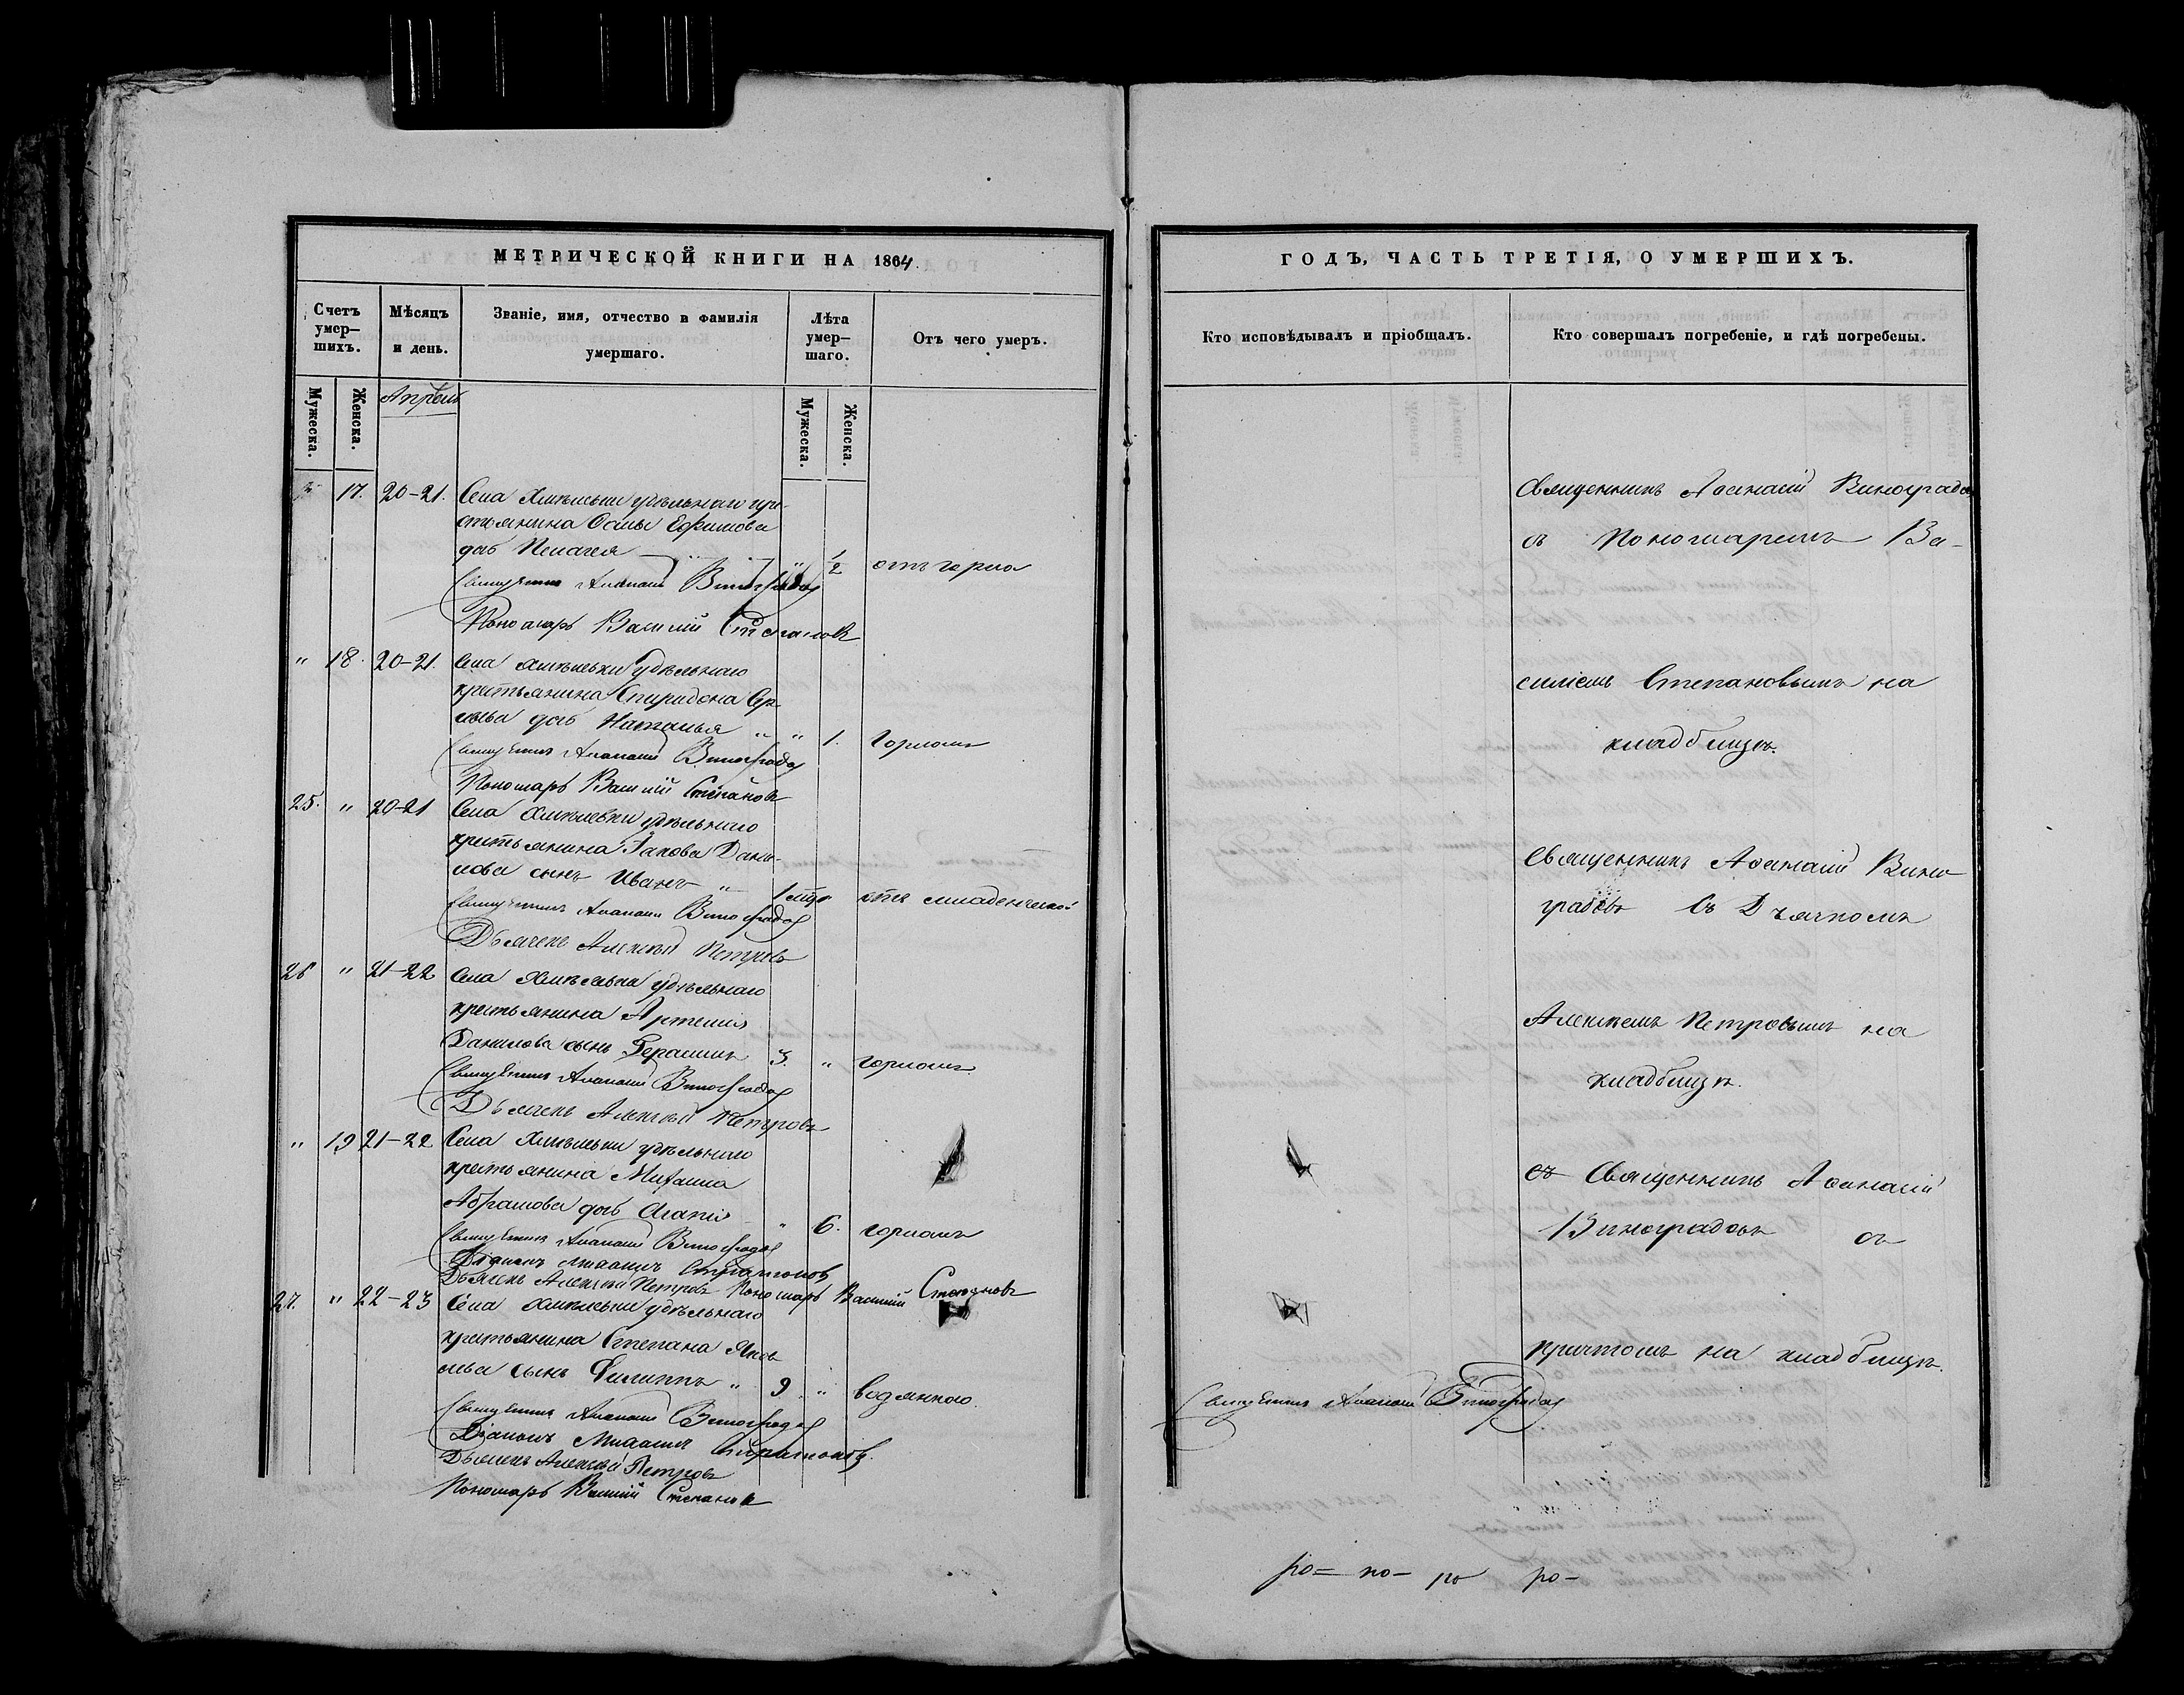 МЕТРИЧЕСКОЙ КНИГИ НА 1864.
Счетъ умер-шихъ.
Мѣсяцъ и день.
Званіе, имя, отчество и фамилія умершаго.
Лѣта умер-шаго.
Отъ чего умеръ.
Мужеска.
Женска.
Мужеска.
Женска.
Апрѣль
17. 20-21. Села удѣльнаго кре-
стьянина Ефимова
дочь Пелагея " 1/2 отъ горла
Священникъ Аѳанасій Виноградов
Пономарь Василій Степановъ
" 18. 20-21. Села удѣльнаго
крестьянина Спиридона Сер-
дочь Наталья " " 1. горломъ
Священникъ Аѳанасій Виноградов
Пономарь Василій Степановъ
25. " 20-21 Села удѣльнаго
крестьянина Іакова Дани-
лова сынъ Иванъ " отъ младенческой
Священникъ Аѳанасій Виноградов
Дьячекъ Алексѣй Петровъ
26 " 21-22 Села удѣльнаго
крестьянина Артемія
Данилова сынъ Герасимъ 3. " горломъ
Священникъ Аѳанасій Виноградов
Дьячекъ Алексѣй Петровъ
" 19 21-22 Села удѣльнаго
крестьянина Михаила
Абрамова дочь " 6. горломъ
Священникъ Аѳанасій Виноградов
Діаконъ
Дьячекъ Алексѣй Петровъ Пономарь Василій Степановъ
27. " 22-23 Села удѣльнаго
крестьянина Степана Яков-
лева сынъ Филиппъ " 9 " водянкою.
Священникъ Аѳанасій Виноградов
Діаконъ
Дьячекъ Алексѣй Петровъ
Пономарь Василій Степановъ
ГОДЪ, ЧАСТЬ ТРЕТІЯ, О УМЕРШИХЪ.
Кто исповѣдывалъ и пріобщалъ.
Кто совершалъ погребеніе, и гдѣ погребены.
Священникъ Аѳанасій Виноградов
съ Пономаремъ Ва-
силіемъ Степановымъ на
кладбищѣ.
Священникъ Аѳанасій Вино-
градовъ съ Дьячкомъ
Алексѣемъ Петровымъ на
кладбищѣ.
съ Священникъ Аѳанасій
Виноградовъ съ
причтомъ на кладбищѣ.
Священникъ Аѳанасій Виноградов
ро= но- ро ро-